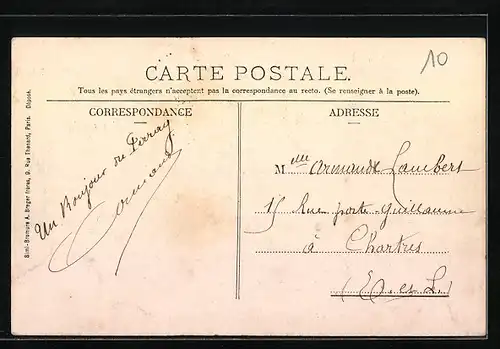 10
CARTE POSTALE.
Tous les pays étrangers n'acceptent pas la correspondance au recto. (Se renseigner à la poste).
CORRESPONDANCE
Un Bonjour du Perray
Armand
ADRESSE
Mlle Armande Lambert
15 Rue porte-Guillaume
à Chartres
(E. et L.)
Simi-Bromure A. Breger frères, 9, Rue Thénard, Paris. Déposé.